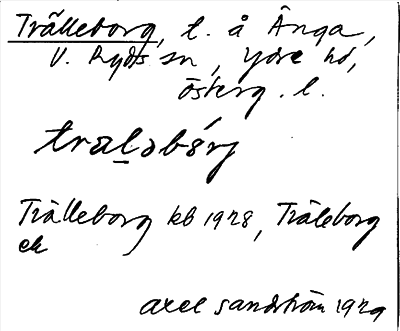 Trälleborg, t. å Ånga,
V. Ryds sn, Ydre hd,
Österg. l.
tralǝbórj
Trälleborg kb 1928, Träleborg
ek
Axel Sandström 1929